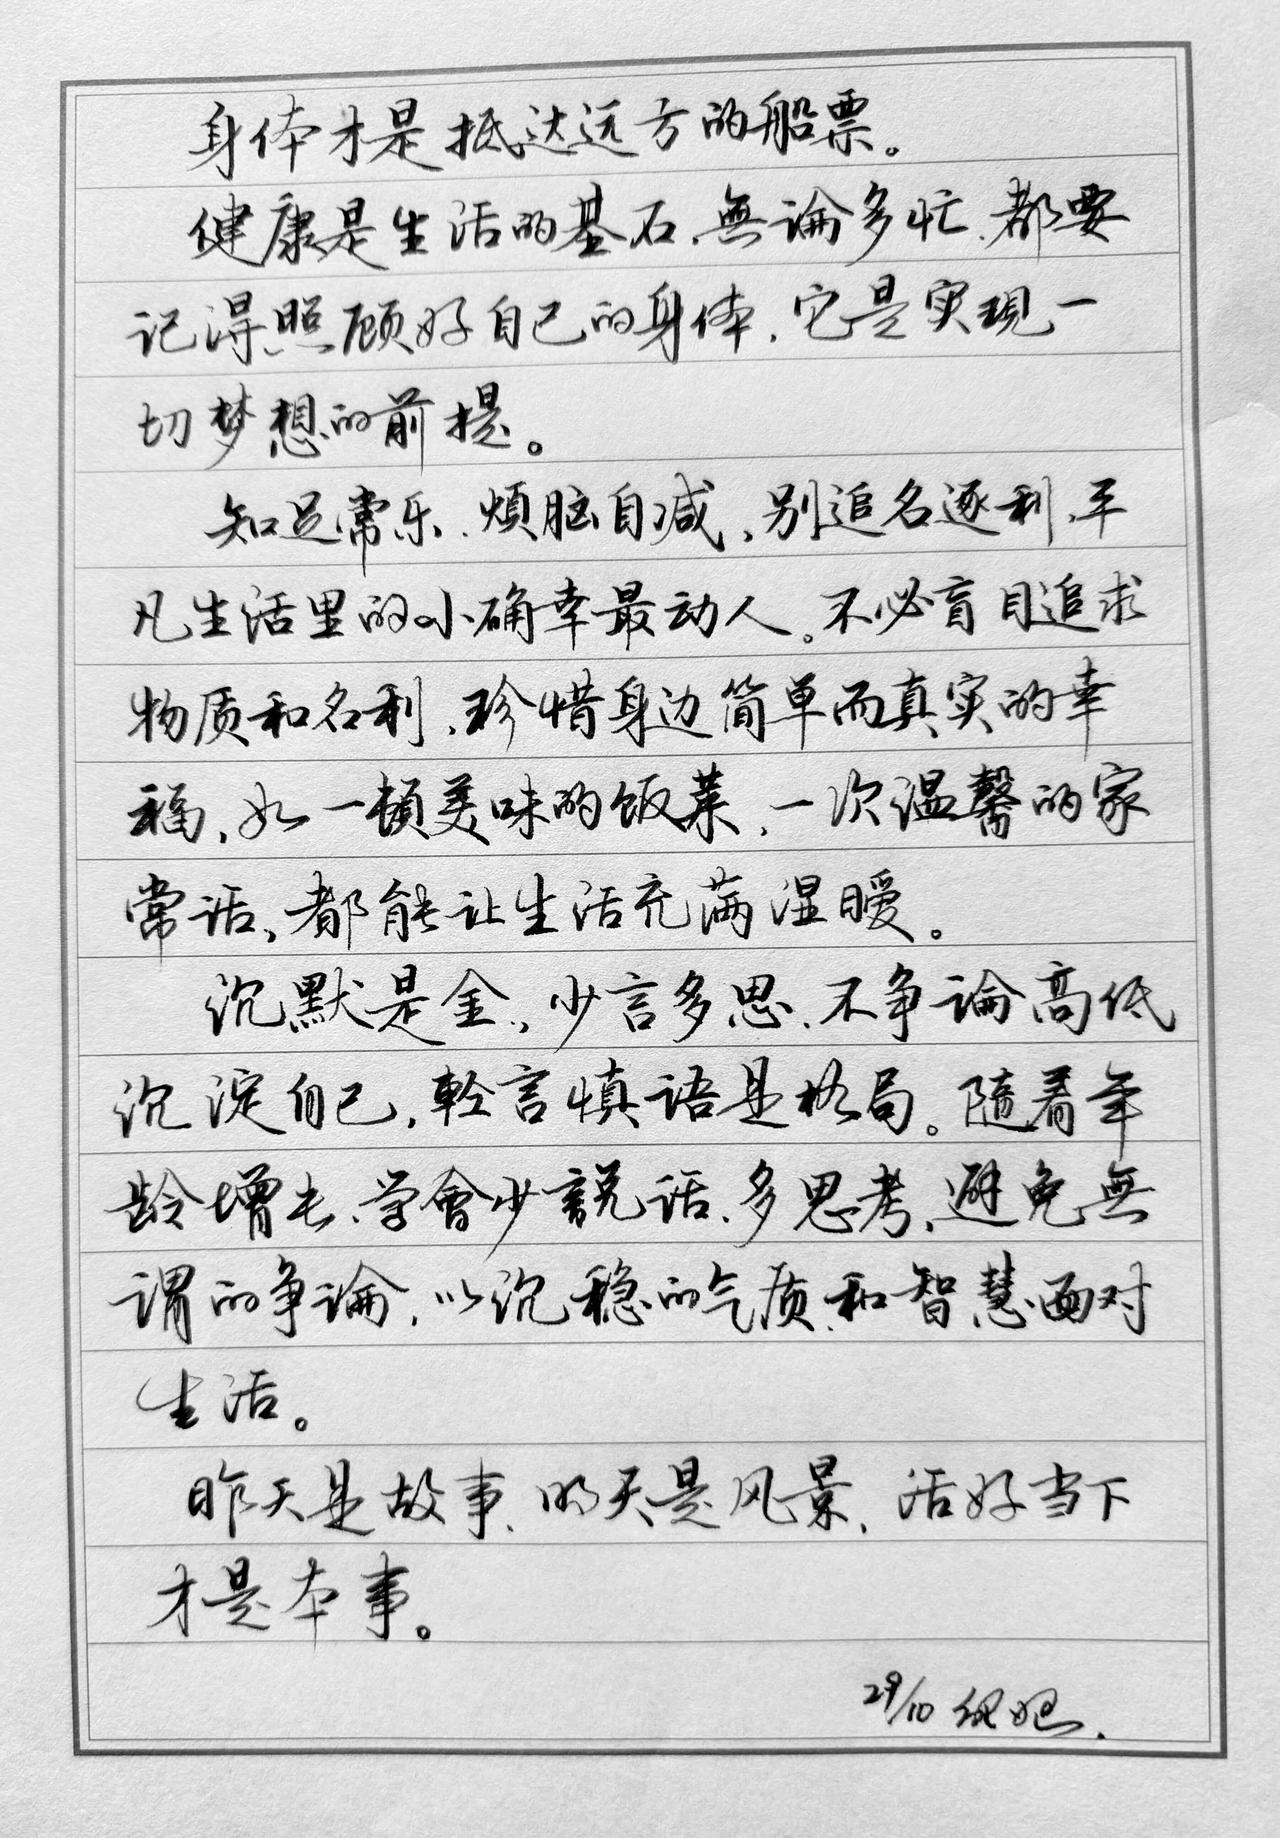 身体才是抵达远方的船票。
健康是生活的基石,無论多忙,都要
记得照顾好自己的身体,它是实現一
切梦想的前提。
知足常乐,烦脑自减,别追名逐利,平
凡生活里的小确幸最动人。不必盲目追求
物质和名利,珍惜身边简单而真实的幸
福,如一顿美味的饭菜,一次温馨的家
常话,都能让生活充满温暖。
沉默是金,少言多思,不争论高低
沉淀自己,轻言慎语是格局。随着年
龄增长,学會少説话,多思考,避免無
谓的争论,以沉稳的气质和智慧面对
生活。
昨天是故事,明天是风景,活好当下
才是本事。
29/10